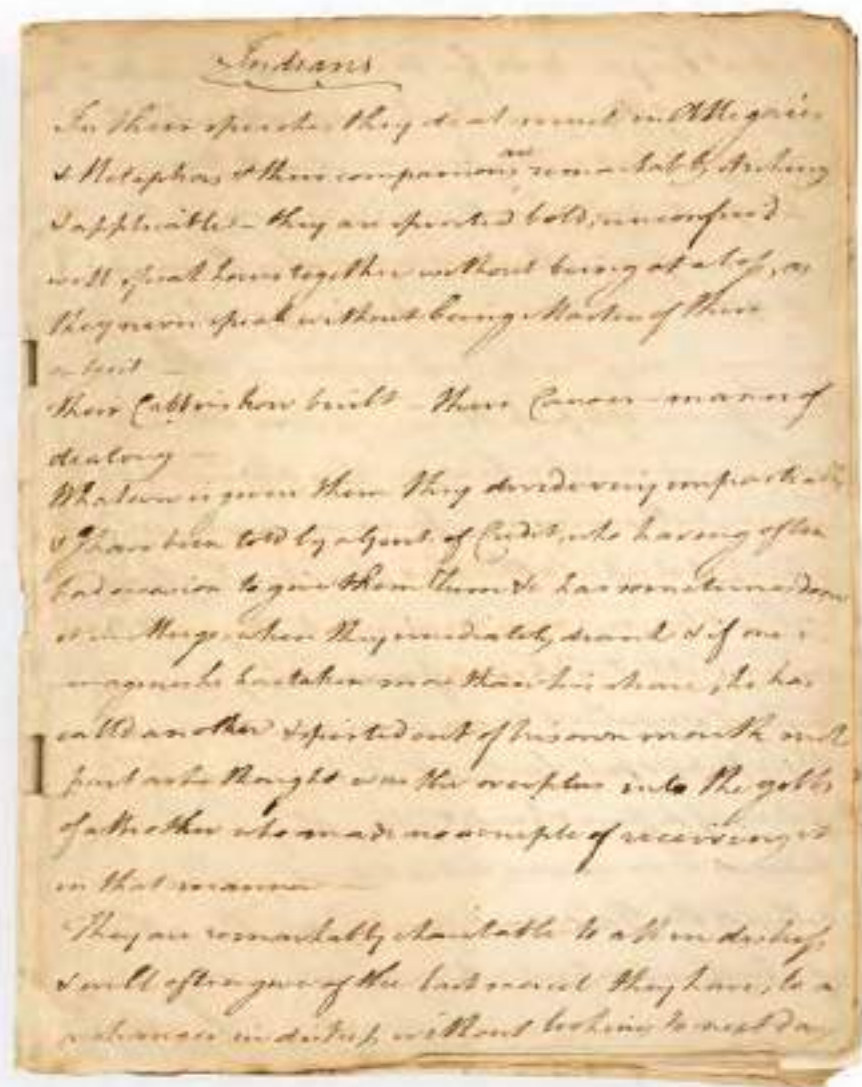 Indians
In their speeches they deal much in Allegories
& Metaphors & their comparisons are remarkably striking
& applicable – they are spirited bold, unconfined
will speak hours together without being at a loss, as
they never speak without being Master of their
subject –
Their Cabbins how built – their Canoes – manner of
dealing –
Whatever is given them they divide very impartially
& I have been told by a Gent. of Credit, who having often
had occasion to give them Rum &c has sometimes done
it in Mugs when they immediately drank & if one
imagined he had taken more than his share, he has
called another & spirted out of his own mouth such
part as he thought was the overplus into the
of another who made no scruple of receiving it
in that manner –
They are remarkably charitable to all in distress
& will often give of the last morsel they have, to a
in distress without looking to next day